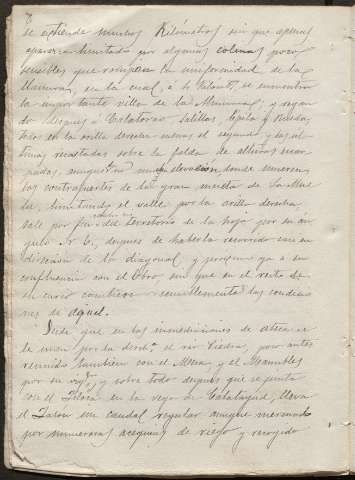 se extiende muchos Kilómetros sin que apenas
aparezca limitado por algunas colinas poco
sensibles que rompan la uniformidad de la
llanura, en la cual, á lo
la importante villa de la Almunia; y siguen
do despues á Calatorao, Salillas, Epila y Rueda,
todos en la orilla derecha menos el segundo y los ul
timos recostados sobre la falda de alturas
padas, aunque no mucha elevación, donde mueren
los contrafuertes de la gran meseta de la Mue
la, limitando el valle por la orilla derecha,
sale por fin del territorio de la hoja por su án
gulo N. E., despues de haberla recorrido casi en
direccion de la diagonal y proximo ya á su
confluencia con el Ebro, sin que en el resto de
su curso cambien sensiblemente las condicio
nes de aquel.
Desde que en las inmediaciones de Ateca se
le unen por su derecha el rio Piedra, poco antes
reunido tambien con el Mesa, y el Manubles
por su izqda, y sobre todo despues que se junta
con el Jiloca en la vega de Calatayud, lleva
el Jalon un caudal regular aunque mermado
por numerosas acequias de riego y recogido